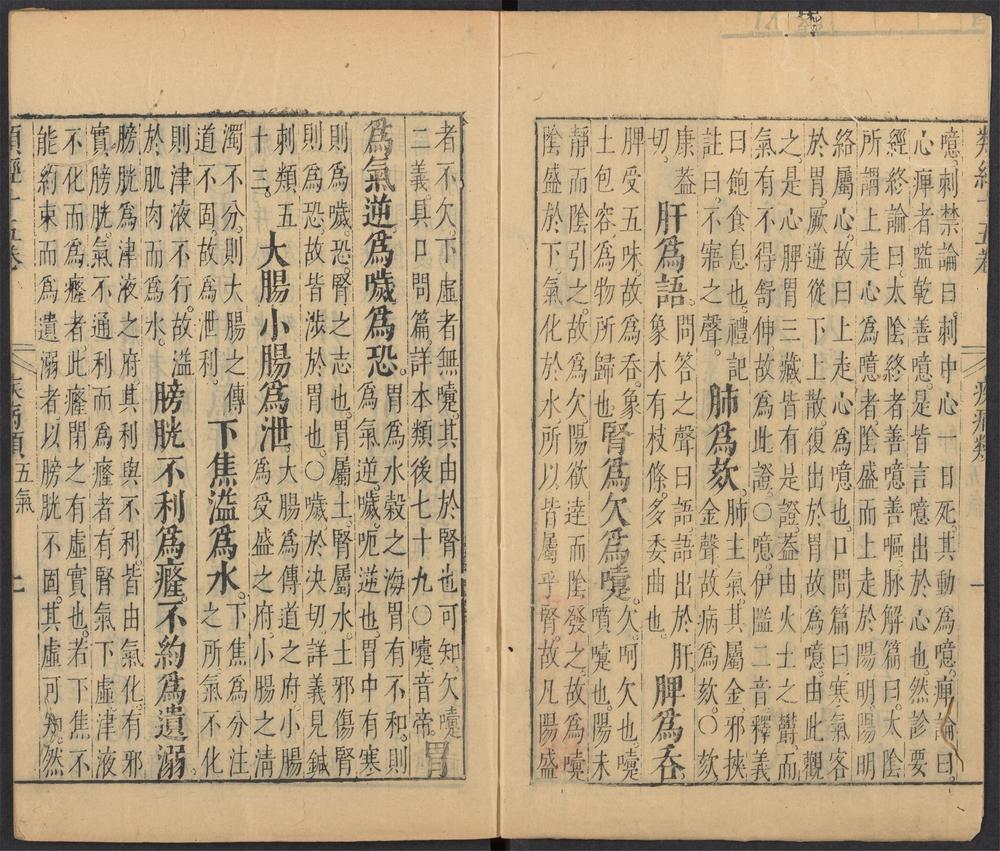 類經十五卷 疾病類
噫。刺禁論曰。刺中心一日死。其動爲噫。痺論曰。
心痺者嗌乾善噫。是皆言噫出於心也。然診要
經終論曰。太陰終者善噫善嘔。脈解篇曰。太陰
所謂上走心爲噫者。陰盛而上走於陽明。陽明
絡屬心。故曰上走心爲噫也。口問篇曰。寒氣客
於胃。厥逆從下上散。復出於胃。故爲噫。由此觀
之。是心脾胃三藏皆有是證。葢由火土之鬱。而
氣有不得舒伸。故爲此證。○噫。伊隘二音。釋義
曰飽食息也。禮記註曰。不寤之聲。肺爲欬。肺主氣。其屬金。邪挾金聲。故病爲欬。○欬
康葢切。肝爲語。問答之聲曰語。語出於肝。象木有枝條。多委曲也。脾爲吞。
脾受五味。故爲吞。象
土包容爲物所歸也。腎爲欠爲嚏。欠。呵欠也。嚏。噴嚏也。陽未
靜而陰引之。故爲欠。陽欲達而陰發之。故爲嚏
陰盛於下。氣化於水。所以皆屬乎腎。故凡陽盛
者不欠。下虛者無嚏。其由於腎也可知。欠嚏
二義。具口問篇。詳本類後七十九。○嚏音帝。胃
爲氣逆爲噦爲恐。胃爲水穀之海。胃有不和。則爲氣逆。噦。呃逆也。胃中有寒
則爲噦。恐。腎之志也。胃屬土。腎屬水。土邪傷腎
則爲恐。故皆涉於胃也。○噦於決切。詳義見鍼
刺類五十三。大腸小腸爲泄。大腸爲傳道之府。小腸爲受盛之府。小腸之清
濁不分。則大腸之傳道不固。故爲泄利。下焦溢爲水。下焦爲分注之所。氣不化
則津液不行。故溢於肌肉而爲水。膀胱不利爲癃。不約爲遺溺。
膀胱爲津液之府。其利與不利。皆由氣化。有邪
實膀胱。氣不通利而爲癃者。有腎氣下虛。津液
不化而爲癃者。此癃閉之有虛實也。若下焦不
能約束而爲遺溺者。以膀胱不固。其虛可知。然
類經十五卷 疾病類 五氣